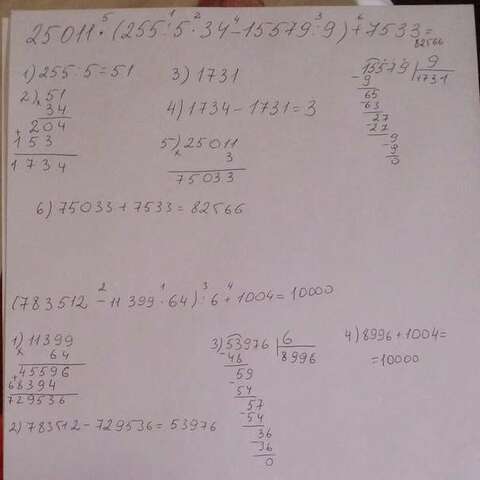 25011·(255:5·34-15579:9)+7533=82566
5 1 2 4 3 6
1) 255:5=51
2) 51
× 34
204
+153
1734
3) 1731
4) 1734-1731=3
5) 25011
× 3
75033
15579 | 9
-9 1731
65
-63
27
-27
9
-9
0
6) 75033+7533=82566
2 1 3 4
(783512-11399·64):6+1004=10000
1) 11399
× 64
45596
+68394
729536
2) 783512-729536=53976
3) 53976 | 6
-48 8996
59
-54
57
-54
36
-36
0
4) 8996+1004=
=10000